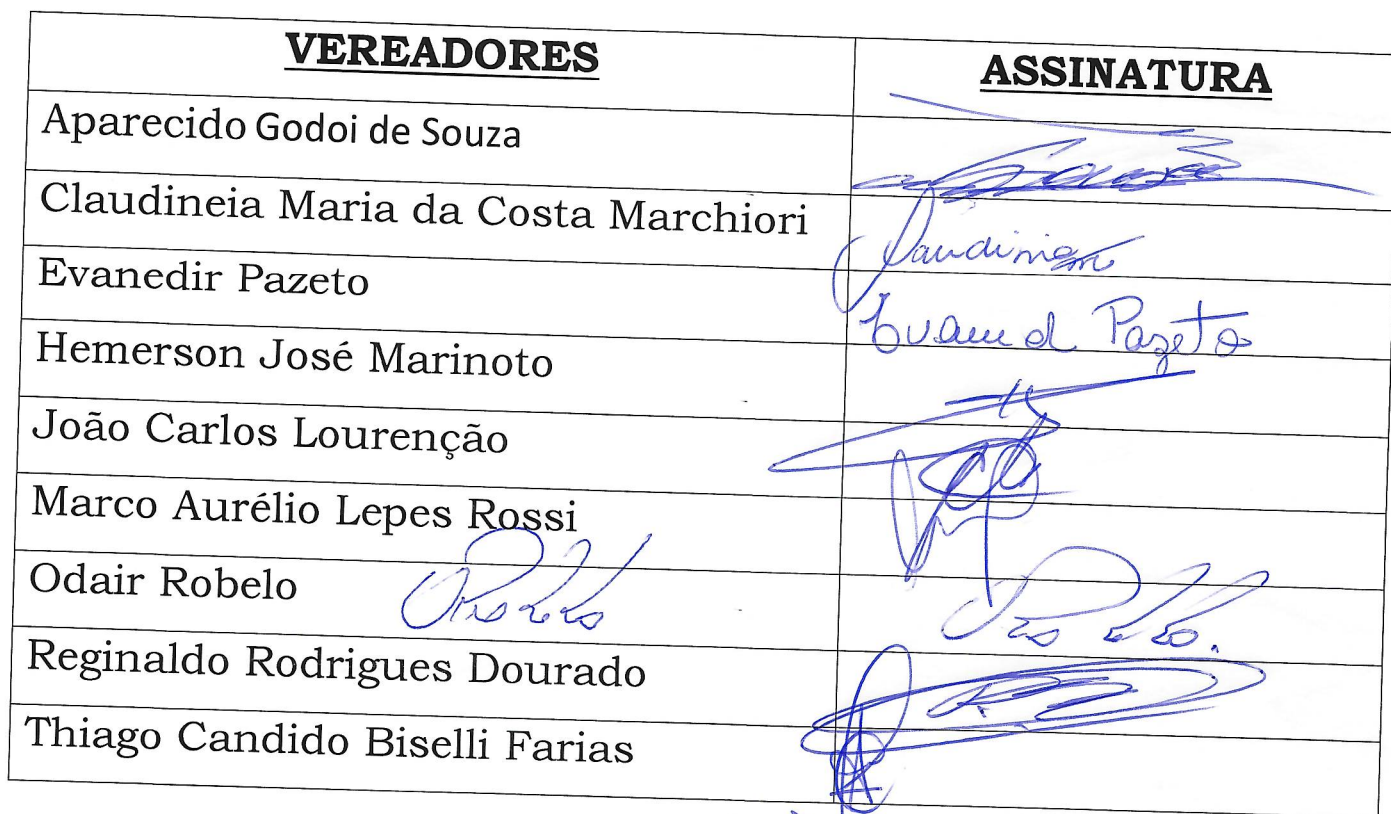 VEREADORES ASSINATURA
Aparecido Godoi de Souza
Claudineia Maria da Costa Marchiori
Evanedir Pazeto Pazeto
Hemerson José Marinoto
João Carlos Lourenção
Marco Aurélio Lepes Rossi
Odair Robelo
Reginaldo Rodrigues Dourado
Thiago Candido Biselli Farias